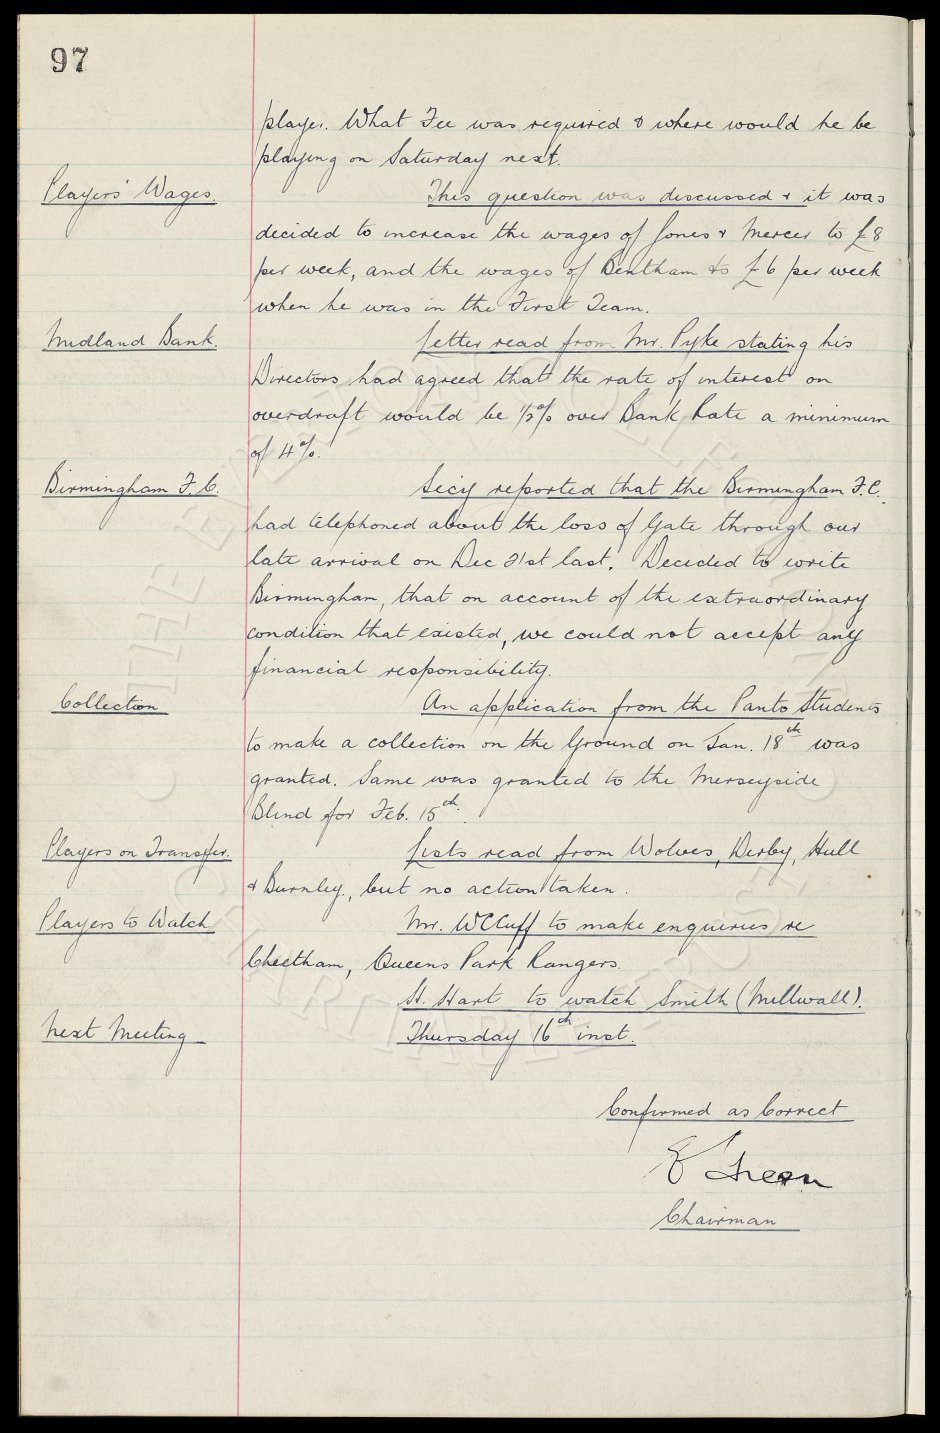 97
player. What Fee was required & where would he be
playing on Saturday next.
Players' Wages. This question was discussed & it was
decided to increase the wages of Jones & Mercer to £8
per week, and the wages of Bentham to £6 per week
when he was in the First Team.
Midland Bank. Letter read from Mr. Pyke stating his
Directors had agreed that the rate of interest on
overdraft would be 1/2% over Bank Rate a minimum
of 4%.
Birmingham F.C. Secy reported that the Birmingham F.C.
had telephoned about the loss of Gate through our
late arrival on Dec 21st last. Decided to write
Birmingham, that on account of the extraordinary
condition that existed, we could not accept any
financial responsibility.
Collection An application from the Panto Students
to make a collection on the Ground on Jan. 18th was
granted. Same was granted to the Merseyside
Blind for Feb. 15th.
Players on Transfer. Lists read from Wolves, Derby, Hull
& Burnley, but no action taken.
Players to Watch Mr. WCCuff to make enquiries re
Cheetham, Queens Park Rangers.
H. Hart to watch Smith (Millwall).
Next Meeting Thursday 16th inst.
Confirmed as Correct
E Green
Chairman
THE EVERTON COLLECTION
CHARITABLE TRUST